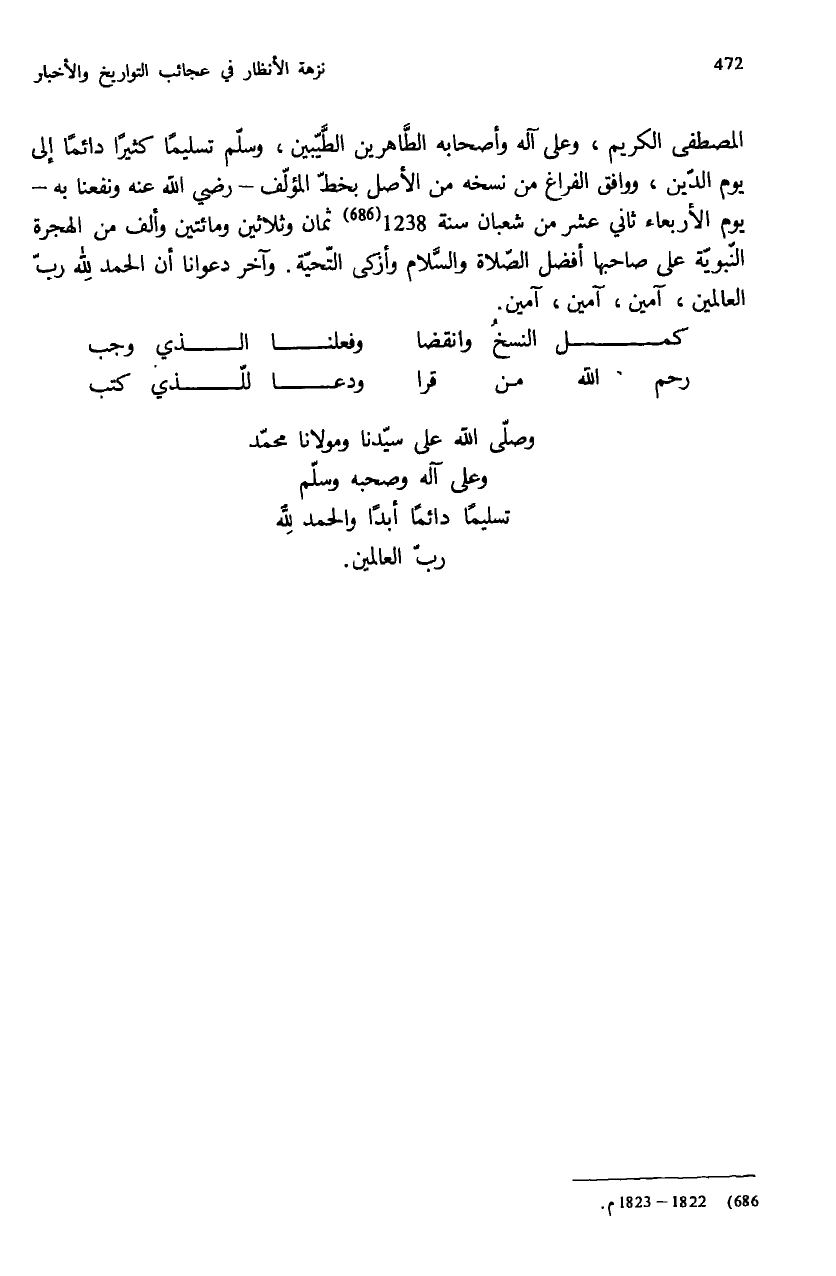 472 نزهة الأنظار في عجائب التواريخ والأخبار
المصطفى الكريم ، وعلى آله وأصحابه الطَّاهرين الطَّيّبين ، وسلّم تسليمًا كثيرًا دائمًا إلى
يوم الدّين ، ووافق الفراغ من نسخه من الأصل بخطّ المؤلّف – رضي الله عنه ونفعنا به –
يوم الأربعاء ثاني عشر من شعبان سنة 1238(686) ثمان وثلاثين ومائتين وألف من الهجرة
النّبويّة على صاحبها أفضل الصّلاة والسَّلام وأزكى التّحيّة . وآخر دعوانا أن الحمد لله ربّ
العالمين ، آمين ، آمين ، آمين.
كمـــــل النسخُ وانقضا وفعلنـــــا الـــــذي وجب
رحم الله من قرا ودعـــــا للّـــــذي كتب
وصلّى الله على سيّدنا ومولانا محمّد
وعلى آله وصحبه وسلّم
تسليمًا دائمًا أبدًا والحمد لله
ربّ العالمين.
686) 1822 – 1823 م.